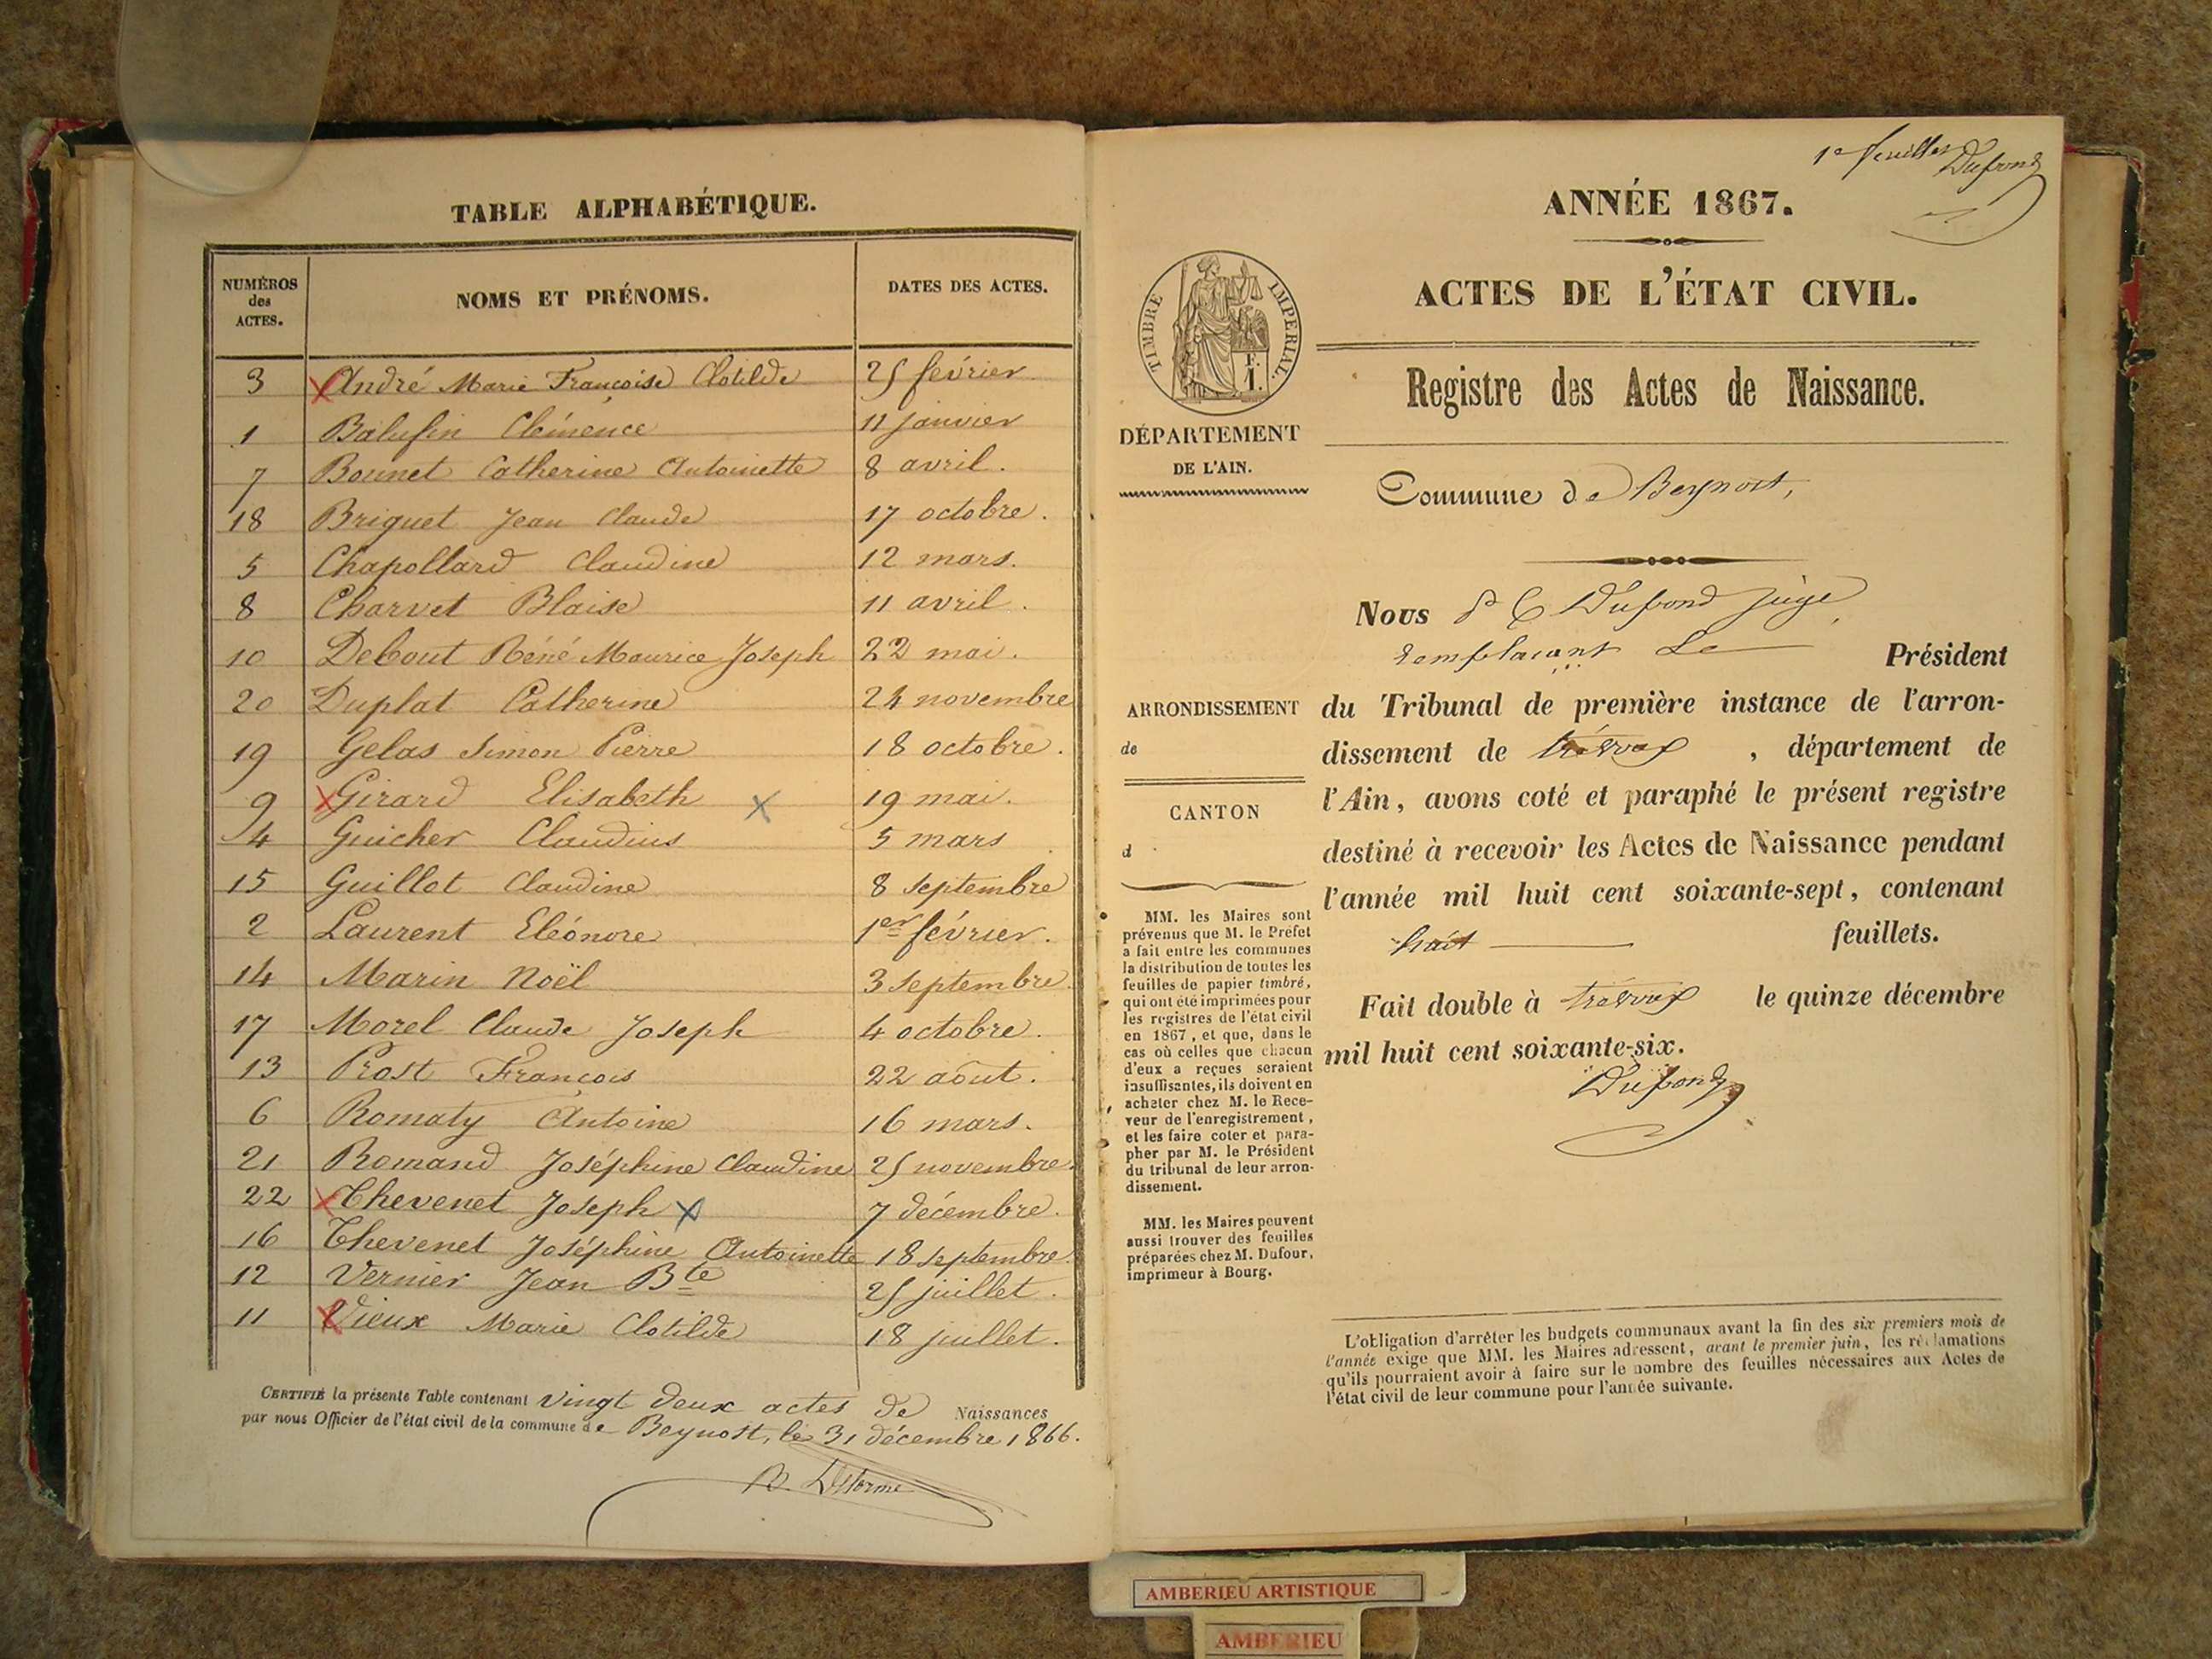 TABLE ALPHABÉTIQUE.
NUMÉROS des ACTES. NOMS ET PRÉNOMS. DATES DES ACTES.
3 André Marie Françoise Clotilde 25 février
1 Balufin Clémence 11 janvier
7 Bonnet Catherine Antoinette 8 avril.
18 Briguet Jean Claude 17 octobre.
5 Chapollard Claudine 12 mars.
8 Charvet Blaise 11 avril.
10 Debout Réné Maurice Joseph 22 mai.
20 Duplat Catherine 24 novembre
19 Gelas Simon Pierre 18 octobre.
9 Girard Elisabeth 19 mai.
4 Guicher Claudius 5 mars
15 Guillot Claudine 8 septembre
2 Laurent Eléonore 1er février.
14 Marin Noël 3 septembre
17 Morel Claude Joseph 4 octobre.
13 Prost François 22 août.
6 Romaty Antoine 16 mars.
21 Romand Joséphine Claudine 25 novembre.
22 Thevenet Joseph 7 décembre.
16 Thevenet Joséphine Antoinette 18 septembre.
12 Vernier Jean Bte 25 juillet.
11 Vieux Marie Clotilde 18 juillet.
CERTIFIÉ la présente Table contenant vingt deux actes de Naissances
par nous Officier de l'état civil de la commune de Beynost, le 31 décembre 1866.
1e feuillet
Dufond
ANNÉE 1867.
ACTES DE L'ÉTAT CIVIL.
TIMBRE IMPERIAL.
F.
1.
Registre des Actes de Naissance.
DÉPARTEMENT
DE L'AIN.
Commune de Beynost,
Nous Dufond juge
remplaçant Le Président
ARRONDISSEMENT
de
du Tribunal de première instance de l'arron-
dissement de trévoux , département de
CANTON
d
l'Ain, avons coté et paraphé le présent registre
destiné à recevoir les Actes de Naissance pendant
l'année mil huit cent soixante-sept, contenant
huit feuillets.
Fait double à trévoux le quinze décembre
mil huit cent soixante-six.
Dufond
MM. les Maires sont
prévenus que M. le Préfet
a fait entre les communes
la distribution de toutes les
feuilles de papier timbré,
qui ont été imprimées pour
les registres de l'état civil
en 1867, et que, dans le
cas où celles que chacun
d'eux a reçues seraient
insuffisantes, ils doivent en
acheter chez M. le Rece-
veur de l'enregistrement,
et les faire coter et para-
pher par M. le Président
du tribunal de leur arron-
dissement.
MM. les Maires peuvent
aussi trouver des feuilles
préparées chez M. Dufour,
imprimeur à Bourg.
L'obligation d'arrêter les budgets communaux avant la fin des six premiers mois de
l'année exige que MM. les Maires adressent, avant le premier juin, les réclamations
qu'ils pourraient avoir à faire sur le nombre des feuilles nécessaires aux Actes de
l'état civil de leur commune pour l'année suivante.
AMBERIEU ARTISTIQUE
AMBERIEU